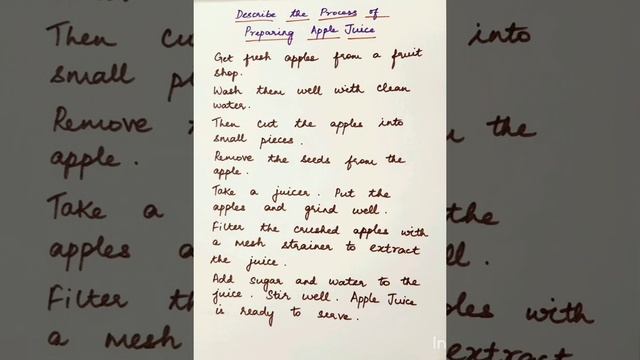 Describe the Process of
Preparing Apple Juice
Get fresh apples from a fruit
shop.
Wash them well with clean
water.
Then cut the apples into
small pieces.
Remove the seeds from the
apple.
Take a juicer. Put the
apples and grind well.
Filter the crushed apples with
a mesh strainer to extract
the juice.
Add sugar and water to the
juice. Stir well. Apple Juice
is ready to serve.